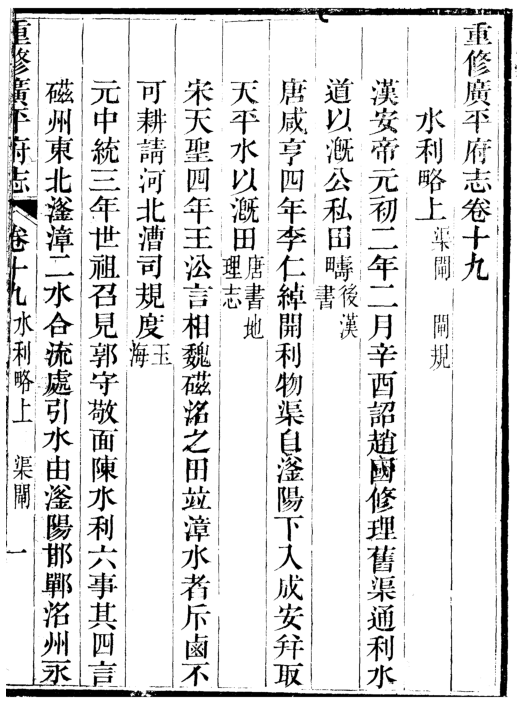 重修廣平府志卷十九
水利略上 渠閘 閘規
漢安帝元初二年二月辛酉詔趙國修理舊渠通利水
道以漑公私田疇後漢書
唐咸亨四年李仁綽開利物渠自滏陽下入成安幷取
天平水以漑田唐書地理志
宋天聖四年王沿言相魏磁洺之田竝漳水者斥鹵不
可耕請河北漕司規度玉海
元中統三年世祖召見郭守敬面陳水利六事其四言
磁州東北滏漳二水合流處引水由滏陽邯鄲洺州永
重修廣平府志 卷十九 水利略上 渠閘 一